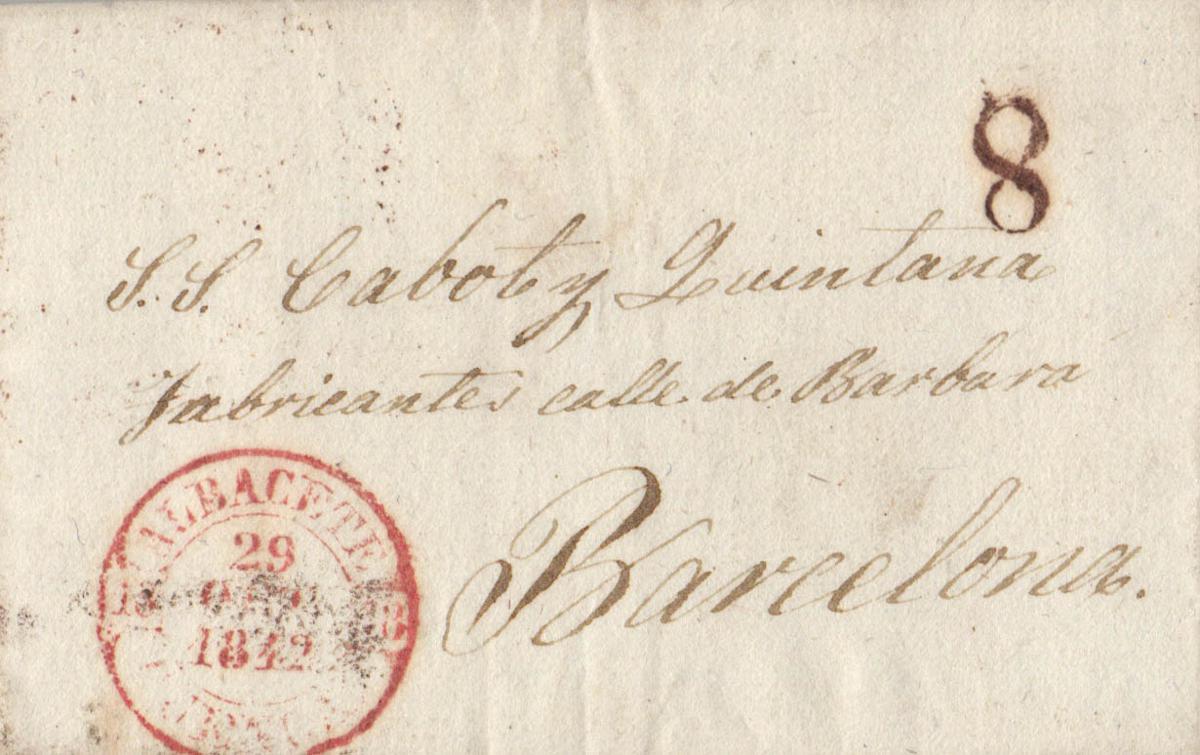 8
S.S. Cabot y Quintana
Fabricantes calle de Barbara
Barcelona.
ALBACETE
29
1842